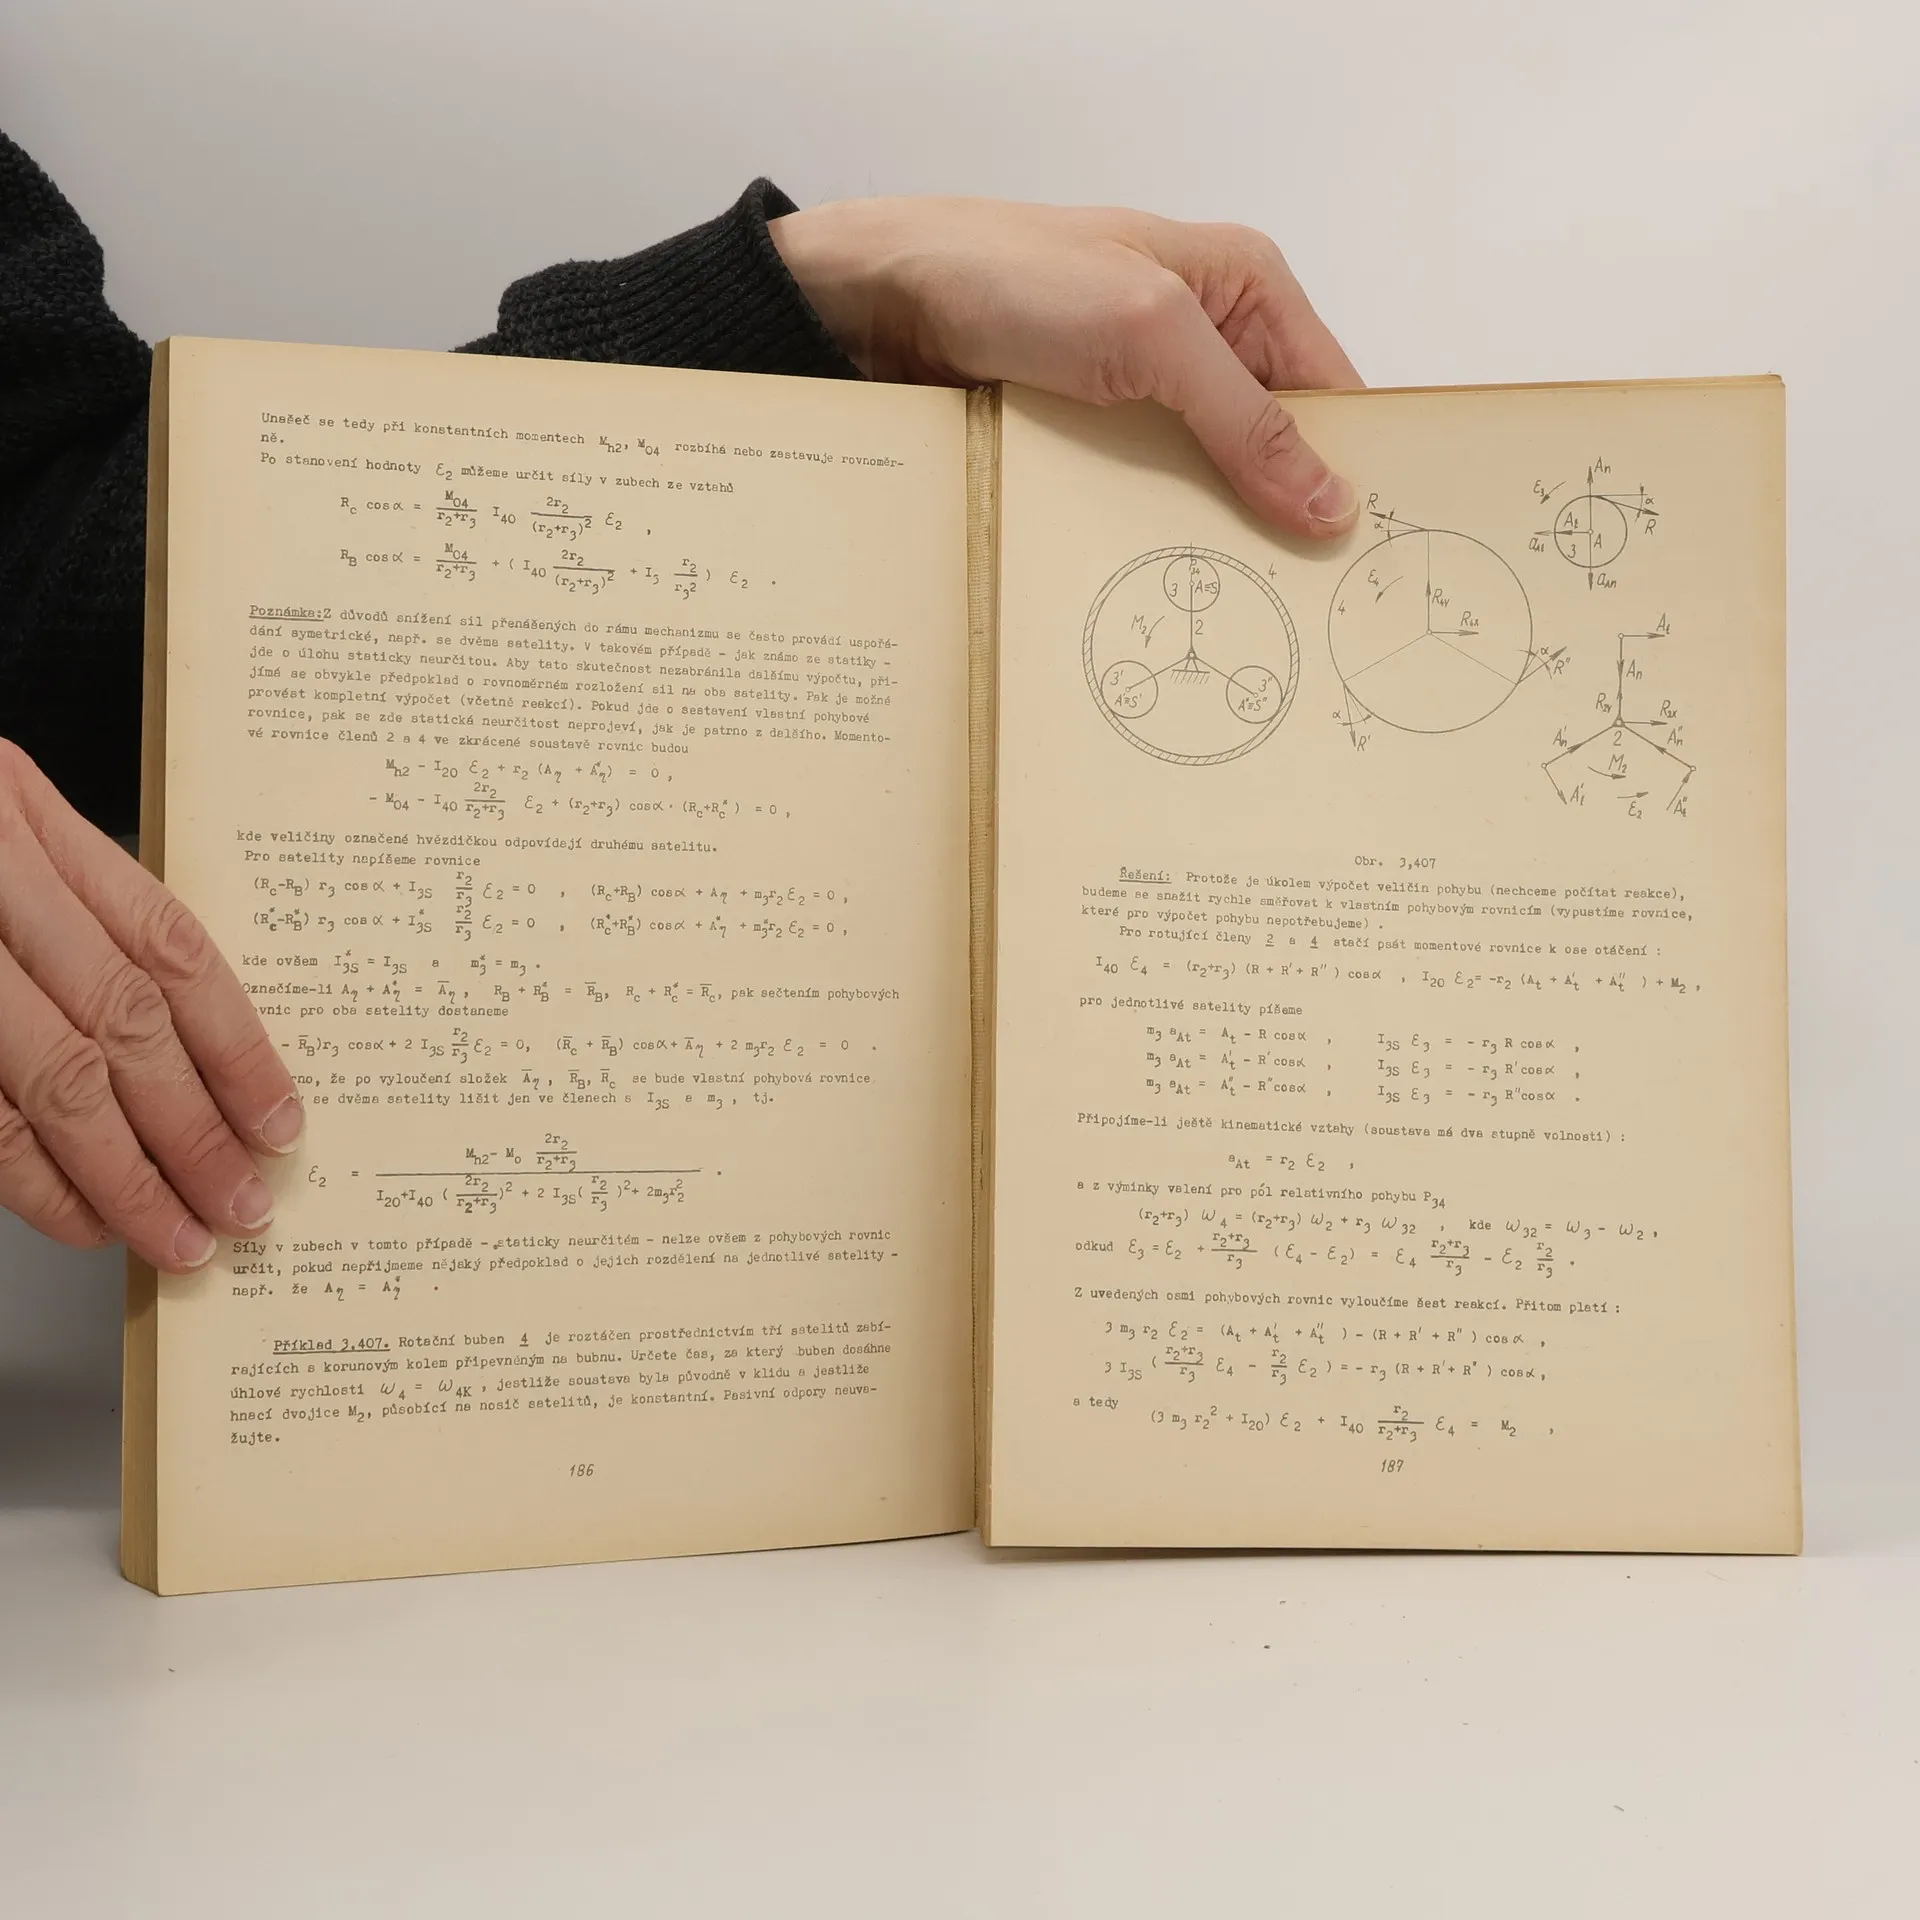 Unašeč se tedy při konstantních momentech M_h2, M_04 rozbíhá nebo zastavuje rovnoměr-
ně.
Po stanovení hodnoty ε_2 můžeme určit síly v zubech ze vztahů
R_c cosα = M_04/(r_2+r_3) I_40 2r_2/(r_2+r_3)^2 ε_2 ,
R_B cosα = M_04/(r_2+r_3) + ( I_40 2r_2/(r_2+r_3)^2 + I_5 r_2/r_3^2 ) ε_2 .
Poznámka:Z důvodů snížení sil přenášených do rámu mechanizmu se často provádí uspořá-
dání symetrické, např. se dvěma satelity. V takovém případě - jak známo ze statiky -
jde o úlohu staticky neurčitou. Aby tato skutečnost nezabránila dalšímu výpočtu, při-
jímá se obvykle předpoklad o rovnoměrném rozložení sil na oba satelity. Pak je možné
provést kompletní výpočet (včetně reakcí). Pokud jde o sestavení vlastní pohybové
rovnice, pak se zde statická neurčitost neprojeví, jak je patrno z dalšího. Momento-
vé rovnice členů 2 a 4 ve zkrácené soustavě rovnic budou
M_h2 - I_20 ε_2 + r_2 (A_η + A*_η) = 0 ,
- M_04 - I_40 2r_2/(r_2+r_3) ε_2 + (r_2+r_3) cosα . (R_c+R_c*) = 0 ,
kde veličiny označené hvězdičkou odpovídají druhému satelitu.
Pro satelity napíšeme rovnice
(R_c-R_B) r_3 cosα + I_3S r_2/r_3 ε_2 = 0 , (R_c+R_B) cosα + A_η + m_3r_2 ε_2 = 0 ,
(R*_c-R*_B) r_3 cosα + I*_3S r_2/r_3 ε_2 = 0 , (R*_c+R*_B) cosα + A*_η + m*_3r_2 ε_2 = 0 ,
kde ovšem I*_3S = I_3S a m*_3 = m_3 .
Označíme-li A_η + A*_η = A̅_η , R_B + R*_B = R̅_B, R_c + R*_c = R̅_c, pak sečtením pohybových
ovnic pro oba satelity dostaneme
- R̅_B)r_3 cosα + 2 I_3S r_2/r_3 ε_2 = 0, (R̅_c + R̅_B) cosα + A̅_η + 2 m_3r_2 ε_2 = 0 .
rno, že po vyloučení složek A̅_η , R̅_B, R̅_c se bude vlastní pohybová rovnice
se dvěma satelity lišit jen ve členech s I_3S a m_3 , tj.
ε_2 = (M_h2 - M_0 2r_2/(r_2+r_3)) / (I_20+I_40 ( 2r_2/(r_2+r_3) )^2 + 2 I_3S( r_2/r_3 )^2 + 2m_3r_2^2) .
Síly v zubech v tomto případě - staticky neurčitém - nelze ovšem z pohybových rovnic
určit, pokud nepřijmeme nějaký předpoklad o jejich rozdělení na jednotlivé satelity -
např. že A_η = A*_η .
Příklad 3,407. Rotační buben 4 je roztáčen prostřednictvím tří satelitů zabí-
rajících s korunovým kolem připevněným na bubnu. Určete čas, za který buben dosáhne
úhlové rychlosti ω_4 = ω_4K , jestliže soustava byla původně v klidu a jestliže
hnací dvojice M_2, působící na nosič satelitů, je konstantní. Pasivní odpory neuva-
žujte.
186
P_34
3 A≡S
4
M_2
2
3'
A'≡S'
3''
A''≡S''
R
α
ε_4
4
R_4y
R_4x
α
R''
α
R'
A_n
ε_3
α
R
A_t
a_At
3
A
a_An
A_t
A_n
R_2y
R_2x
A'_n
2
A''_n
M_2
A'_t
ε_2
A''_t
Obr. 3,407
Řešení: Protože je úkolem výpočet veličin pohybu (nechceme počítat reakce),
budeme se snažit rychle směřovat k vlastním pohybovým rovnicím (vypustíme rovnice,
které pro výpočet pohybu nepotřebujeme) .
Pro rotující členy 2 a 4 stačí psát momentové rovnice k ose otáčení :
I_40 ε_4 = (r_2+r_3) (R + R' + R'' ) cosα , I_20 ε_2 = -r_2 (A_t + A'_t + A''_t ) + M_2 ,
pro jednotlivé satelity píšeme
m_3 a_At = A_t - R cosα , I_3S ε_3 = - r_3 R cosα ,
m_3 a_At = A'_t - R'cosα , I_3S ε_3 = - r_3 R'cosα ,
m_3 a_At = A''_t - R''cosα , I_3S ε_3 = - r_3 R''cosα .
Připojíme-li ještě kinematické vztahy (soustava má dva stupně volnosti) :
a_At = r_2 ε_2 ,
a z výminky valení pro pól relativního pohybu P_34
(r_2+r_3) ω_4 = (r_2+r_3) ω_2 + r_3 ω_32 , kde ω_32 = ω_3 - ω_2 ,
odkud ε_3 = ε_2 + (r_2+r_3)/r_3 (ε_4 - ε_2) = ε_4 (r_2+r_3)/r_3 - ε_2 r_2/r_3 .
Z uvedených osmi pohybových rovnic vyloučíme šest reakcí. Přitom platí :
3 m_3 r_2 ε_2 = (A_t + A'_t + A''_t ) - (R + R' + R'' ) cosα ,
3 I_3S ( (r_2+r_3)/r_3 ε_4 - r_2/r_3 ε_2 ) = - r_3 (R + R' + R'' ) cosα ,
a tedy
(3 m_3 r_2^2 + I_20) ε_2 + I_40 r_2/(r_2+r_3) ε_4 = M_2 ,
187